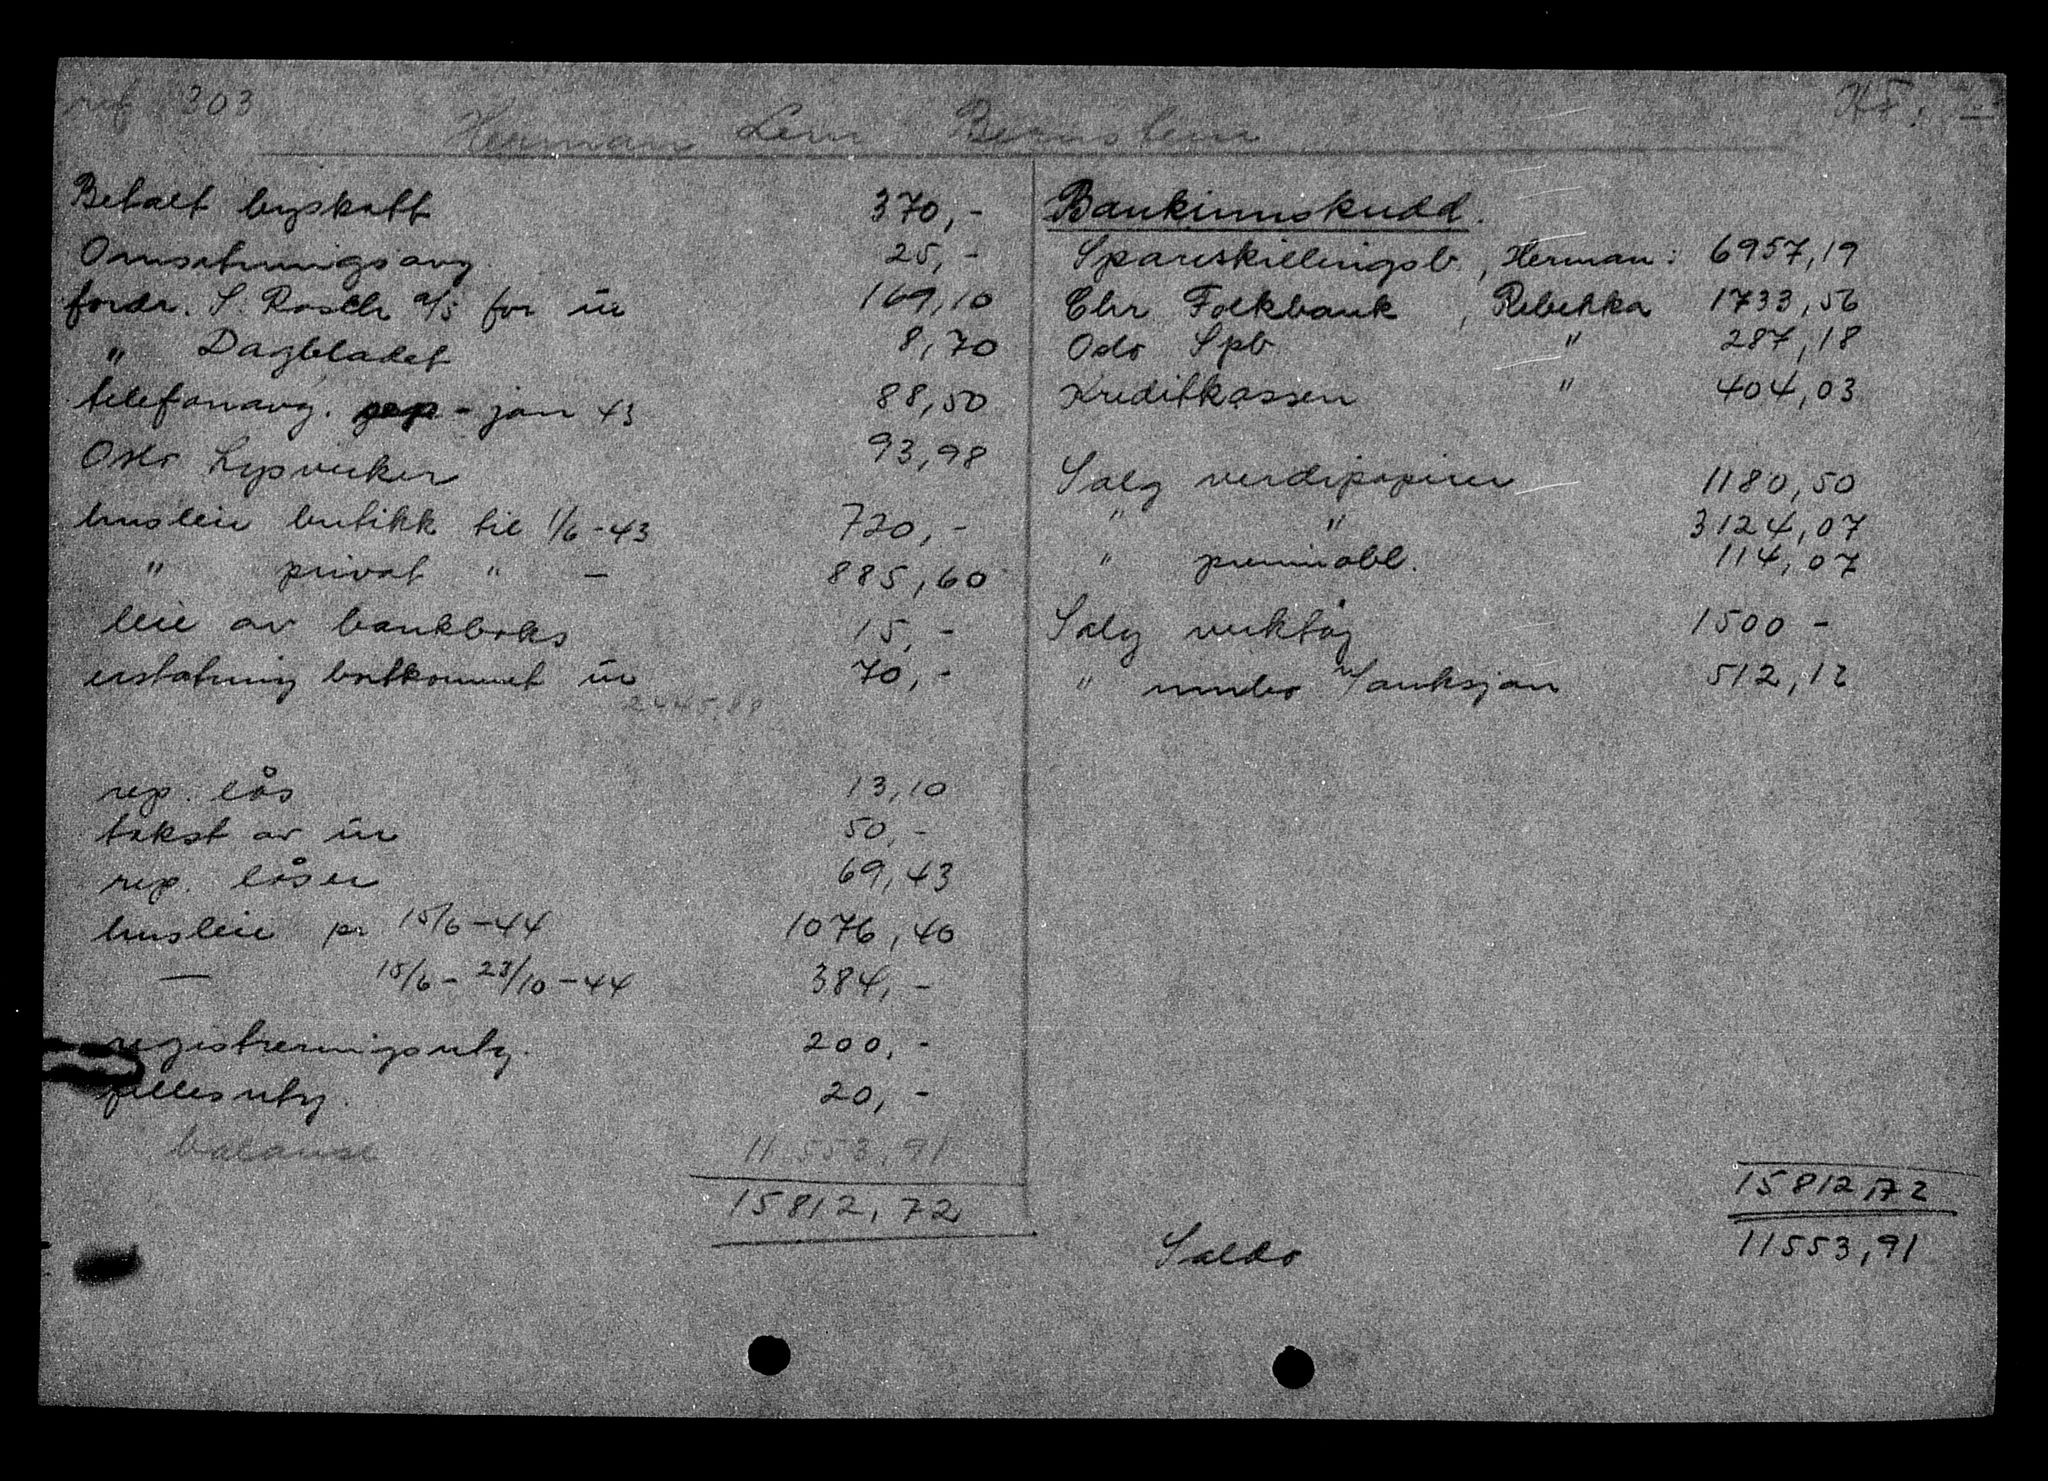 303
Herman Levi Bernstein
Betalt byskatt 370,-
Omsetningsavg. 25,-
fordr. S. a/s for ur 169,10
" Dagbladet 8,70
telefonavg. - jan 43 88,50
Oslo Lysverker 93,98
husleie butikk til 1/6-43 720,-
" privat " - 885,60
leie av bankboks 15,-
erstatning bortkommet ur 70,-
2445,88
rep. lås 13,10
takst av ur 50,-
rep. låser 69,43
husleie pr 15/6-44 1076,40
— 15/6-23/10-44 384,-
registreringsutg. 200,-
fellesutg. 20,-
balanse 11553,91
15812,72
Bankinnskudd.
Spareskillingsb., Herman: 6957,19
Chr Folkbank, Rebekka 1733,56
Oslo Spb " 287,18
Kreditkassen " 404,03
Salg verdipapirer 1180,50
" " 3124,07
" premieobl. 114,07
Salg verktøy 1500 -
" v/auksjon 512,12
15812,72
Saldo 11553,91